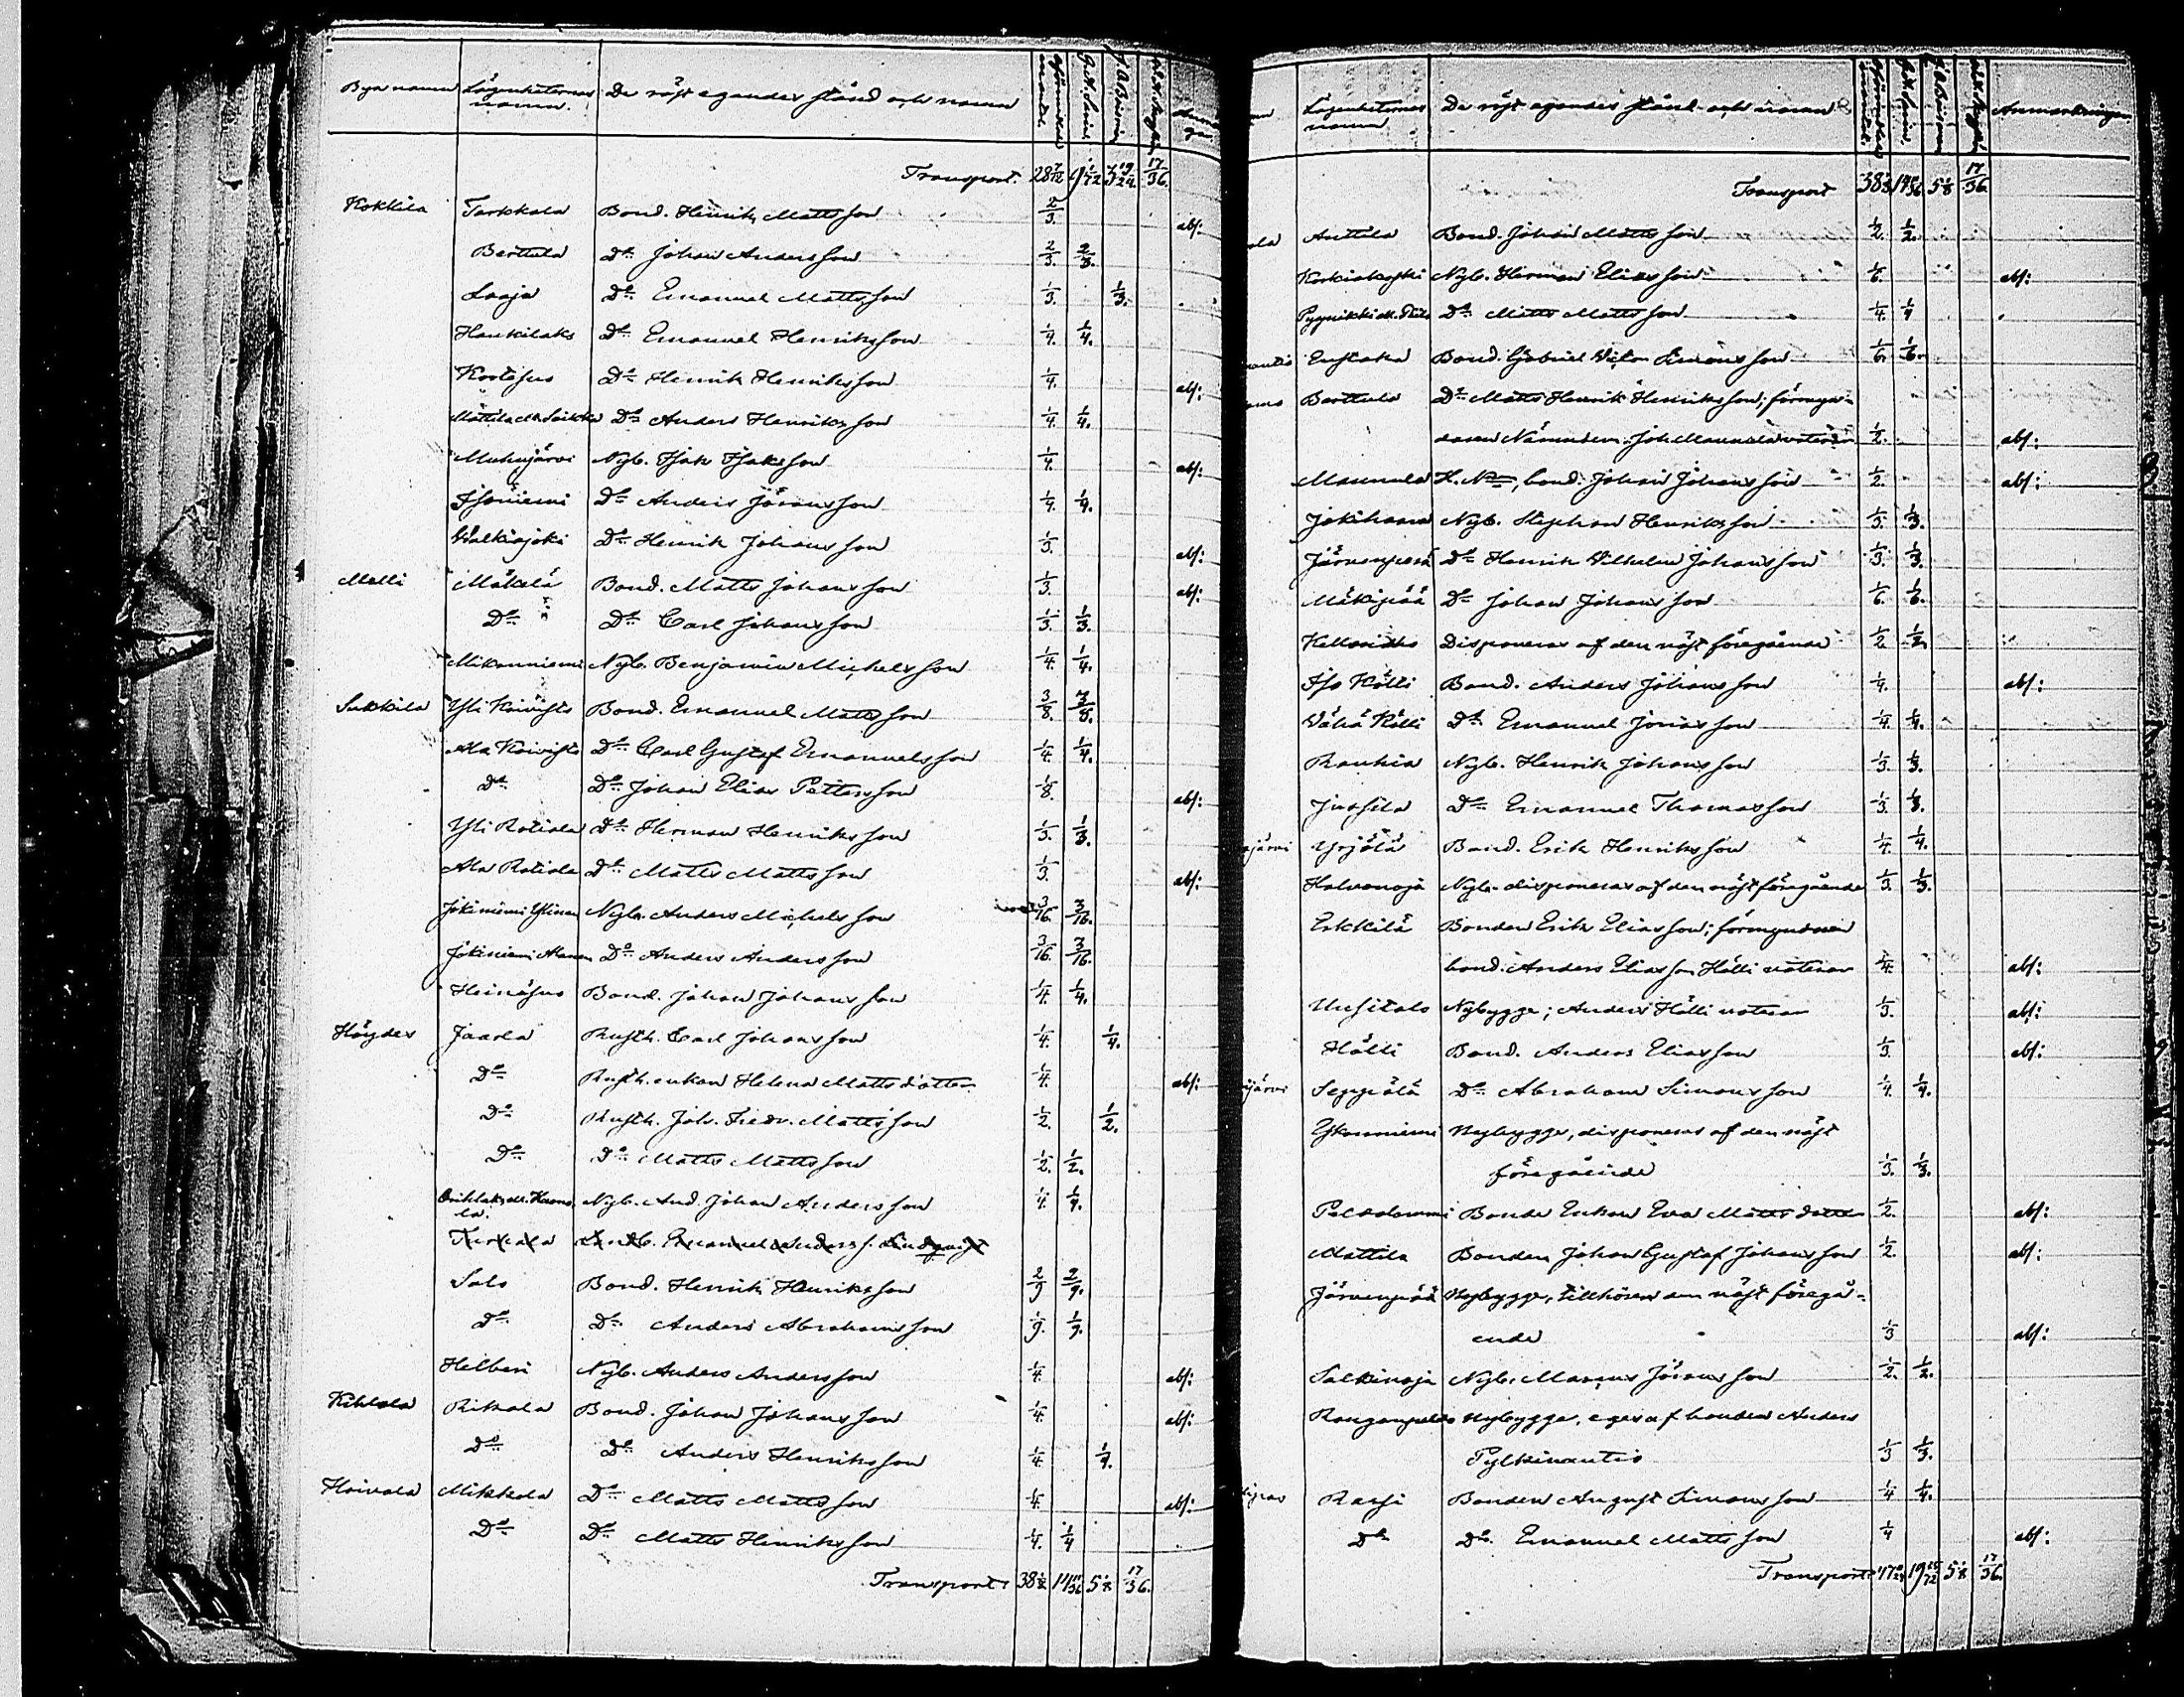 Bya namn Lägenheternas namn. De röst egandes stånd och namn
Transport. 28 7/12 9 1/72 3 19/24 17/36.
Kokkila Tarkkala Bond. Henrik Mattsson 2/3. abs:
Berttula D:o Johan Andersson 2/3. 2/3.
Laaja D:o Emanuel Mattsson 1/3. 1/3.
Haukilaks D:o Emanuel Henriksson 1/4. 1/4.
D:o Henrik Henriksson 1/4. abs:
D:o Anders Henriksson 1/4. 1/4.
Muhujärvi Nyb. Isak Isaksson 1/4. abs:
Isoniemi D:o Anders Jöransson 1/4. 1/4.
Walkiajoki D:o Henrik Johansson 1/3. abs:
Melli Mäkelä Bond. Matts Johansson 1/3. abs:
D:o D:o Carl Johansson 1/3. 1/3.
Mikonniemi Nyb. Benjamin Michelsson 1/4. 1/4.
Sukkila Yli Koivisto Bond. Emanuel Mattsson 3/8. 3/8.
Ala Koivisto D:o Carl Gustaf Emanuelsson 1/4. 1/4.
D:o D:o Johan Elias Pettersson 1/8. abs:
Yli Rotiola D:o Herman Henriksson 1/3. 1/3.
Ala Rotiola D:o Matts Mattsson 1/3. abs:
Jokiniemi Ylinen Nyb. Anders Michelsson 3/16. 3/16.
Jokiniemi Alanen D:o Anders Andersson 3/16. 3/16.
Heinäsuo Bond. Johan Johansson 1/4. 1/4.
Höyder Jaarla Rusth. Carl Johansson 1/4. 1/4.
D:o Rusth. enkan Helena Mattsdotter 1/4. abs:
D:o Rusth. Joh. Fredr. Mattsson 1/2. 1/2.
D:o D:o Matts Mattsson 1/2. 1/2.
Nyb. And. Johan Andersson 1/4. 1/4.
la.
Emanuel Anderss. Lindqvist
Salo Bond. Henrik Henriksson 2/9 2/9.
D:o D:o Anders Abrahamsson 1/9. 1/9.
Helberi Nyb. Anders Andersson 1/4. abs:
Kihlala Rikala Bond. Johan Johansson 1/4. abs:
D:o D:o Anders Henriksson 1/4. 1/4.
Hoivala Mikkola D:o Matts Mattsson 1/4. abs:
D:o D:o Matts Henriksson 1/4. 1/4
Transport 38 1/8 14 11/36 5 1/8 17/36.
Lägenheternas namn De röst egandes stånd och namn Anmärkningar
Transport 38 1/8 14 11/36. 5 1/8 17/36.
Anttila Bond. Johan Mattsson 1/2. 1/2.
Koskiakoski Nyb. Herman Eliasson 1/6. abs:
D:o Matts Mattsson 1/4. 1/4
Eustaka Bond. Gabriel Victor Simonsson 1/6. 1/6.
Berttula D:o Matts Henrik Henriksson; förmyn-
daren Nämndem. Joh. Maunula voterar 1/2. abs:
Maunula bond. Johan Johansson 1/2. abs:
Jokihaara Nyb. Stephan Henriksson 1/3. 1/3.
Järvenperä D:o Henrik Vilhelm Johansson 1/3. 1/3.
Mäkipää D:o Johan Johansson 1/6. 1/6.
Disponeras af den näst föregående 1/2. 1/2.
Iso Kölli Bond. Anders Johansson 1/4. abs:
Vähä Kölli D:o Emanuel Jonasson 1/4. 1/4.
Rauhia Nyb. Henrik Johansson 1/3. 1/3.
Jussila D:o Emanuel Thomasson 1/3. 1/3.
järvi Yrjölä Bond. Erik Henriksson 1/4. 1/4.
Halvanoja Nyb. disponeras af den näst föregående 1/3. 1/3.
Erkkilä Bonden Erik Eliasson; förmyndaren
bond. Anders Eliasson Hölli voterar 1/4. abs:
Uusitalo Nybygge; Anders Hölli voterar 1/3. abs:
Hölli Bond. Anders Eliasson 1/3. abs:
järvi Seppälä D:o Abraham Simonsson 1/4. 1/4.
Nybygge, disponeras af den näst
föregående 1/3. 1/3.
Bonde Enkan Eva Mattsdotter 1/2. abs:
Mattila Bonden Johan Gustaf Johansson 1/2. abs:
Järvenpää Nybygge, tillhörer den näst föregå-
ende 1/3 abs:
Salkinoja Nyb. Marcus Jöransson 1/2. 1/2.
Nybygge, eges af bonden Anders
Pylkinantis 1/3 1/3.
Rassi Bonden August Simonsson 1/4 1/4.
D:o D:o Emanuel Mattsson 1/4 abs:
Transport 5 1/8 17/36.